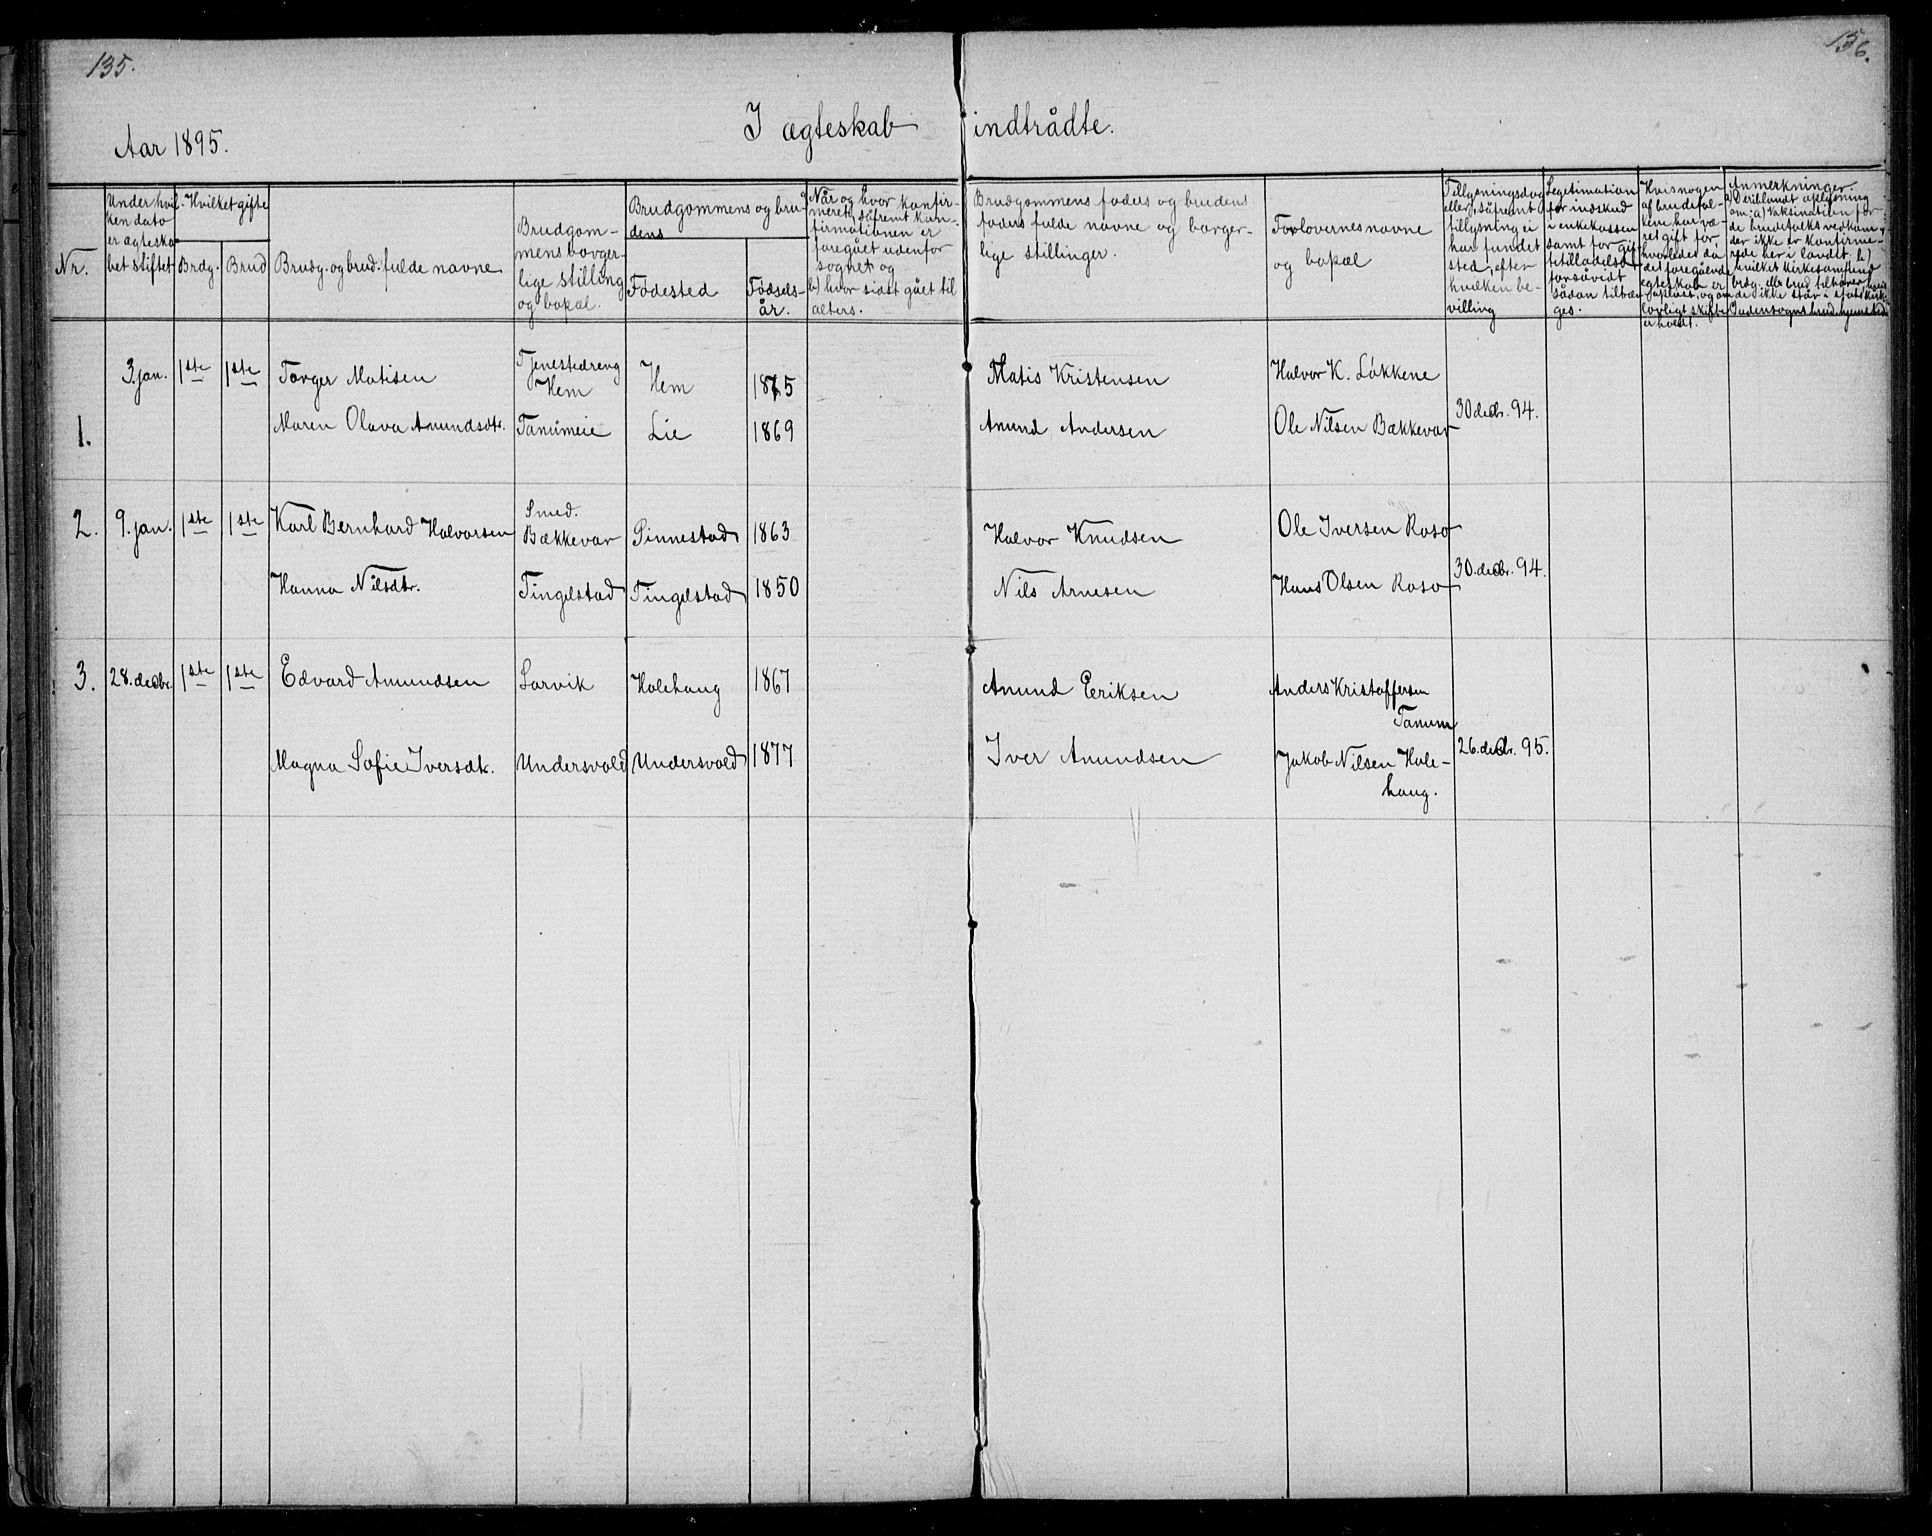 135.
136.
I ægteskab indtrådte.
Aar 1895.
Nr.
Under hvil-
ken dato
er ægteska-
bet stiftet
Hvilket gifte
Brdg.
Brud
Brudg. og brud. fulde navne
Brudgom-
mens borger-
lige stilling
og bopæl.
Brudgommens og bru-
dens
Födested
Födsels-
år.
Når og hvor konfir-
meret, såfremt kon-
firmationen er
foregået udenfor
sognet og
b) hvor sidst gået til
alters.
Brudgommens faders og brudens
faders fulde navne og borger-
lige stillinger.
Forlovernes navne
og bopæl
Tillysningsdag
eller, såfremt
tillysning ei
har fundet
sted, efter
hvilken be-
villing
Legitimation
for indskud
i enkekassen
samt for gif-
tetilladelse
forsåvidt
sådan tiltræn-
ges.
Hvis nogen
af brudefol-
kene har væ-
ret gift før,
hvorledes da
det foregående
egteskab er
opløst, og om
lovligt skifte
er holdt.
Anmerkninger.
Deriblandt oplysning
om: a) Vaksination for
de brudefolks vedkom-
der ikke er konfirme-
rede her i landet. b)
hvilket kirkesamfund
brdg. eller brud tilhører, hvis
de ikke står i statskirk.
Udensogns brud. hjemsted
1.
3. jan. 1ste 1ste Torger Matisen Tjenestedreng Hem Hem 1875 Matis Kristensen Halvor K. Løkkene
Maren Olava Amundsdtr. Tanumeie Lie 1869 Amund Andersen Ole Nilsen Bækkevar 30 decbr. 94.
2. 9. jan. 1ste 1ste Karl Bernhard Halvorsen Smed. Bækkevar Sinnestad 1863 Halvor Knudsen Ole Iversen Raso
Hanna Nilsdtr. Tingelstad Tingelstad 1850 Nils Arnesen Hans Olsen Raso 30. decbr. 94.
3. 28. decbr. 1ste 1ste Edvard Amundsen Larvik Holehaug 1867 Amund Eeriksen Anders Kristoffersen
Tanum
Magna Sofie Iversdtr. Undersvold Undersvold 1877 Iver Amundsen Jakob Nilsen Hole-
haug. 26. decbr. 95.